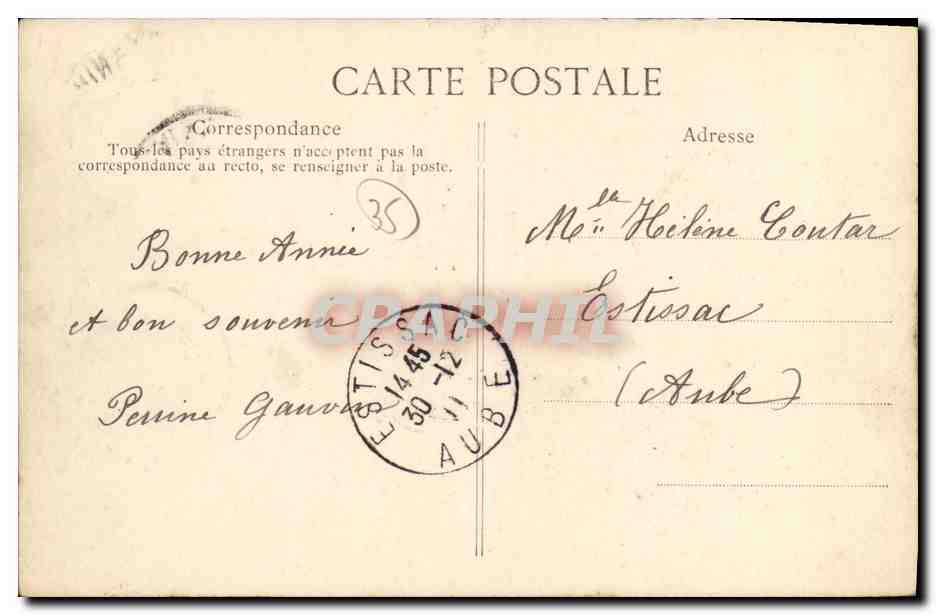 CARTE POSTALE
Correspondance
Tous les pays étrangers n'acceptent pas la
correspondance au recto, se renseigner à la poste.
35
Bonne Année
et bon souvenir
Perrine Gauvin
Adresse
Mlle Hélène Coutar
Estissac
(Aube)
ESTISSAC
14 45
30 -12
11
AUBE
CPAPHIL